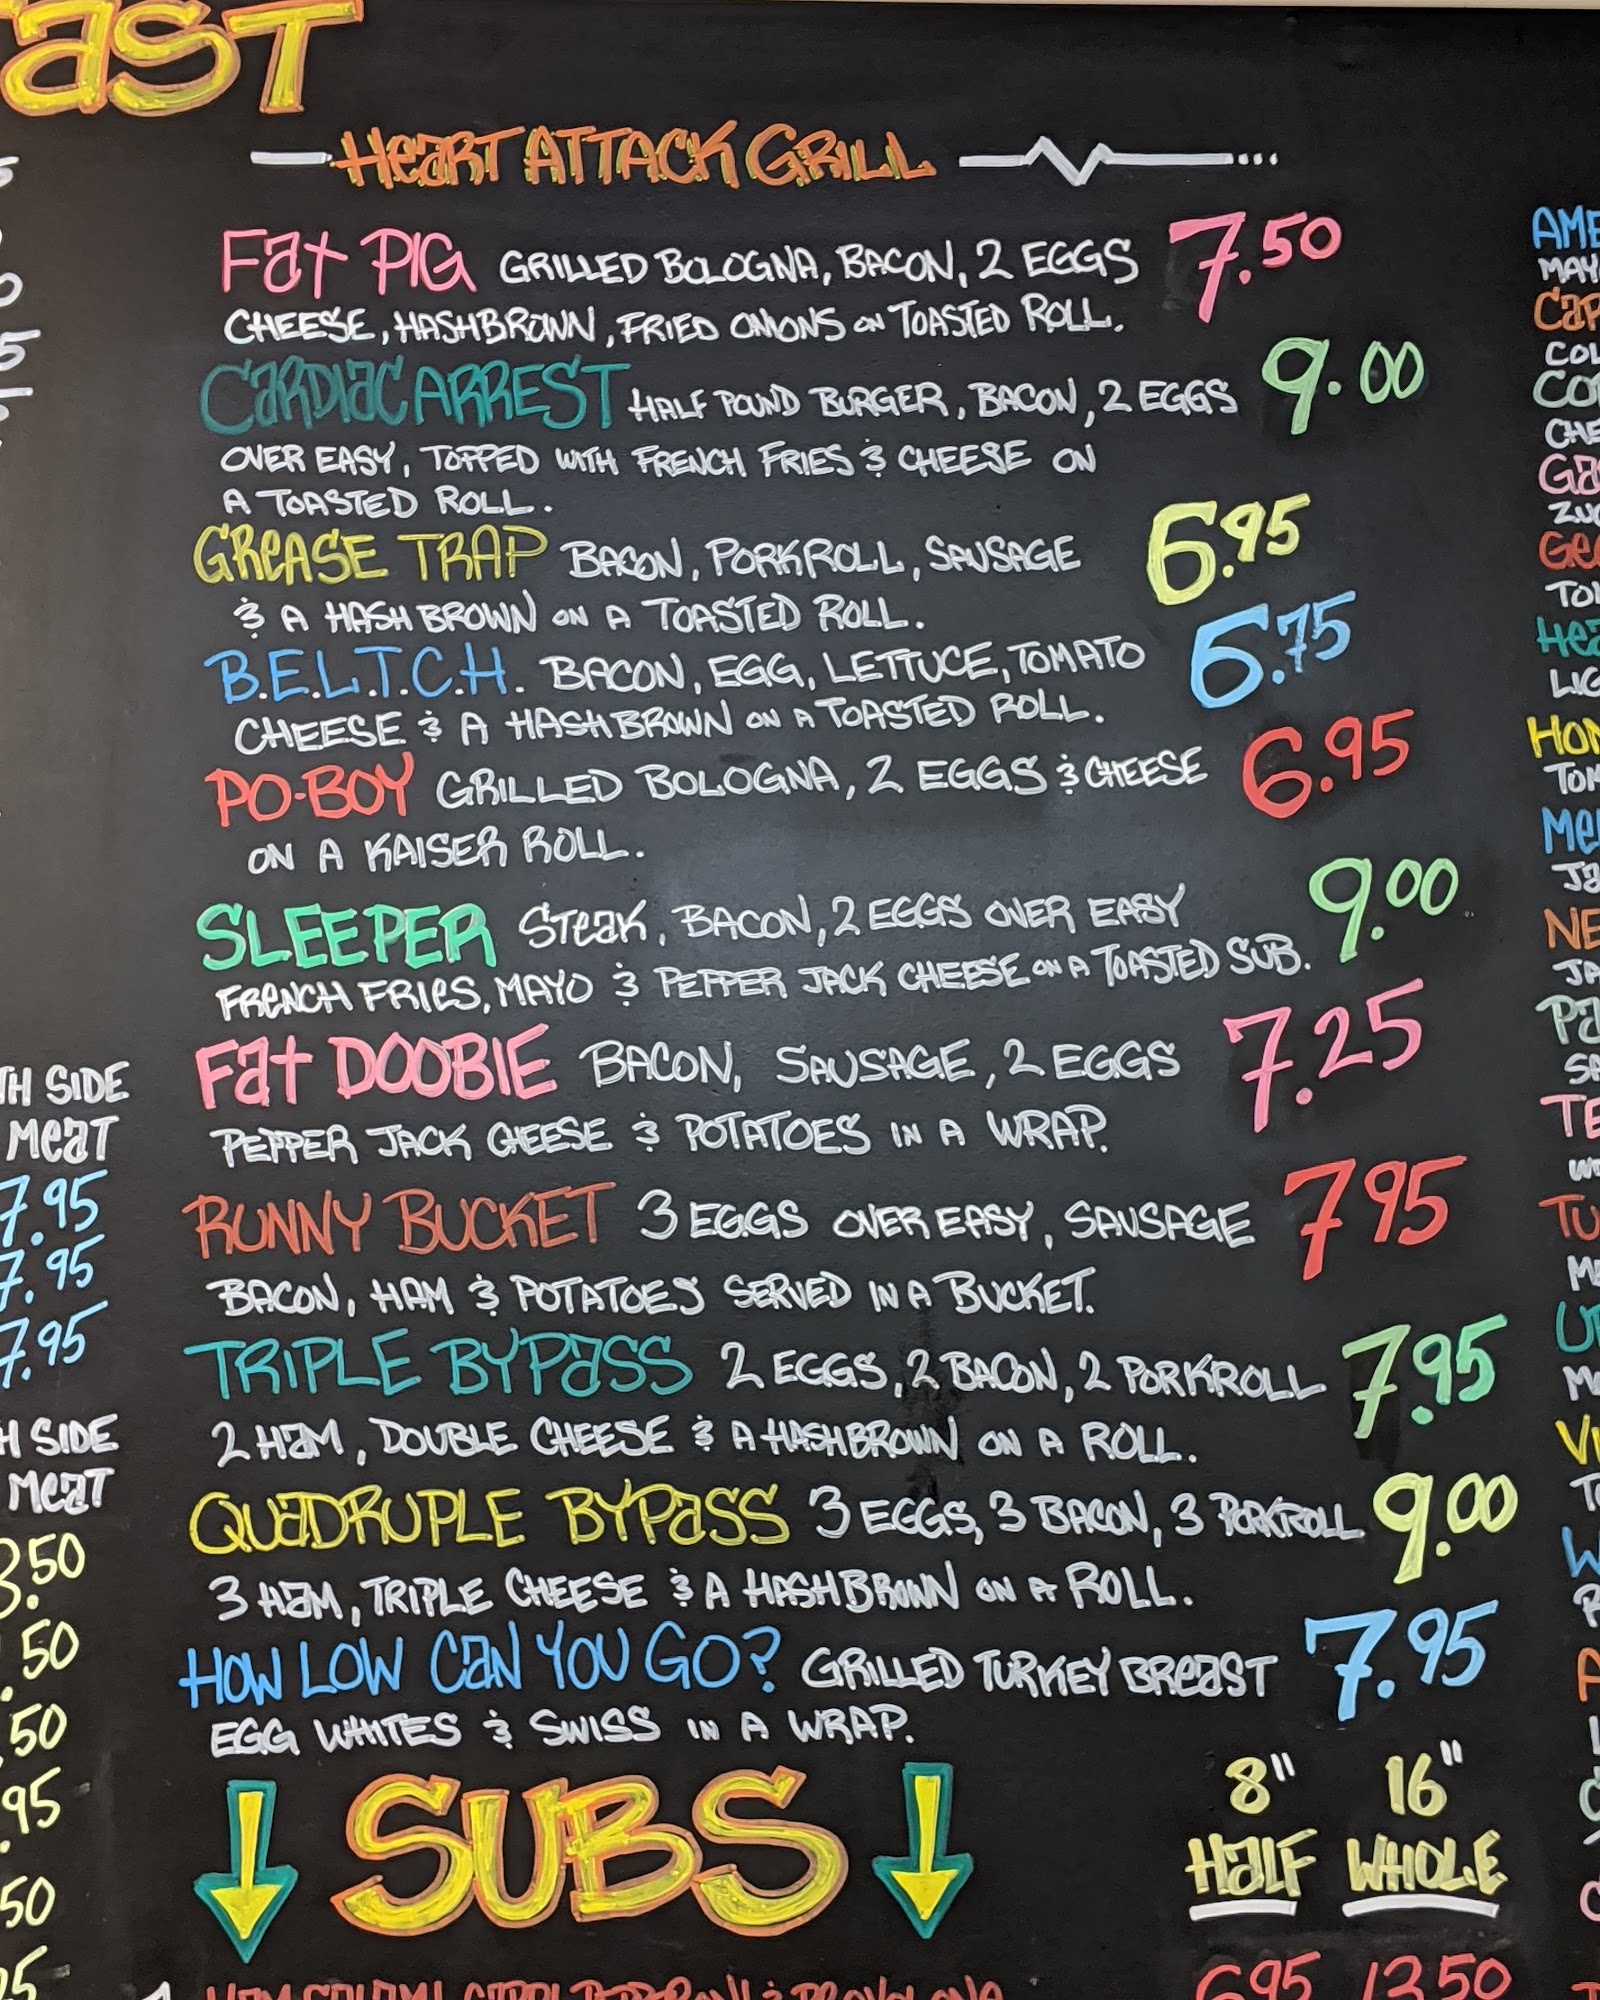 HEART ATTACK GRILL
FAT PIG GRILLED BOLOGNA, BACON, 2 EGGS 7.50
CHEESE, HASHBROWN, FRIED ONIONS ON TOASTED ROLL.
CARDIAC ARREST HALF POUND BURGER, BACON, 2 EGGS 9.00
OVER EASY, TOPPED WITH FRENCH FRIES & CHEESE ON
A TOASTED ROLL.
GREASE TRAP BACON, PORKROLL, SAUSAGE 6.95
& A HASH BROWN ON A TOASTED ROLL.
B.E.L.T.C.H. BACON, EGG, LETTUCE, TOMATO 6.75
CHEESE & A HASHBROWN ON A TOASTED ROLL.
PO-BOY GRILLED BOLOGNA, 2 EGGS & CHEESE 6.95
ON A KAISER ROLL.
SLEEPER STEAK, BACON, 2 EGGS OVER EASY 9.00
FRENCH FRIES, MAYO & PEPPER JACK CHEESE ON A TOASTED SUB.
FAT DOOBIE BACON, SAUSAGE, 2 EGGS 7.25
PEPPER JACK CHEESE & POTATOES IN A WRAP.
RUNNY BUCKET 3 EGGS OVER EASY, SAUSAGE 7.95
BACON, HAM & POTATOES SERVED IN A BUCKET.
TRIPLE BYPASS 2 EGGS, 2 BACON, 2 PORKROLL 7.95
2 HAM, DOUBLE CHEESE & A HASHBROWN ON A ROLL.
QUADRUPLE BYPASS 3 EGGS, 3 BACON, 3 PORKROLL 9.00
3 HAM, TRIPLE CHEESE & A HASHBROWN ON A ROLL.
HOW LOW CAN YOU GO? GRILLED TURKEY BREAST 7.95
EGG WHITES & SWISS IN A WRAP.
SUBS 8" HALF 16" WHOLE
6.95 13.50
SIDE
MEAT
7.95
7.95
7.95
SIDE
MEAT